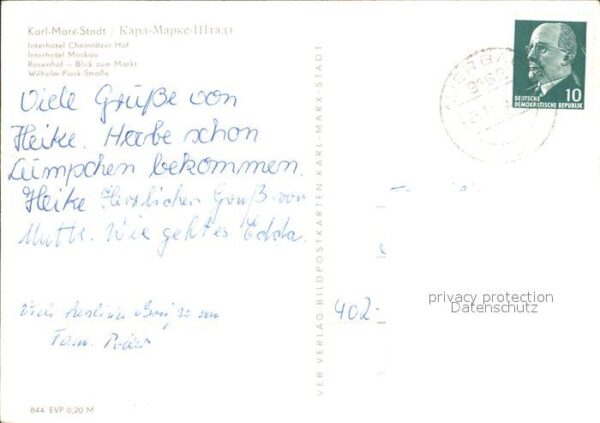 Karl-Marx-Stadt / Карл-Маркс-Штадт
Interhotel Chemnitzer Hof
Interhotel Moskau
Rosenhof – Blick zum Markt
Wilhelm-Pieck-Straße
Viele Grüße von
Heike. Habe schon
Lümpchen bekommen.
Heike Herzlichen Gruß von
Mutti. Wie geht es Edda.
Viele herzliche Grüße von
Fam.
844 EVP 0,20 M
VEB VERLAG BILDPOSTKARTEN KARL-MARX-STADT
DEUTSCHE
DEMOKRATISCHE REPUBLIK
10
402-
privacy protection
Datenschutz